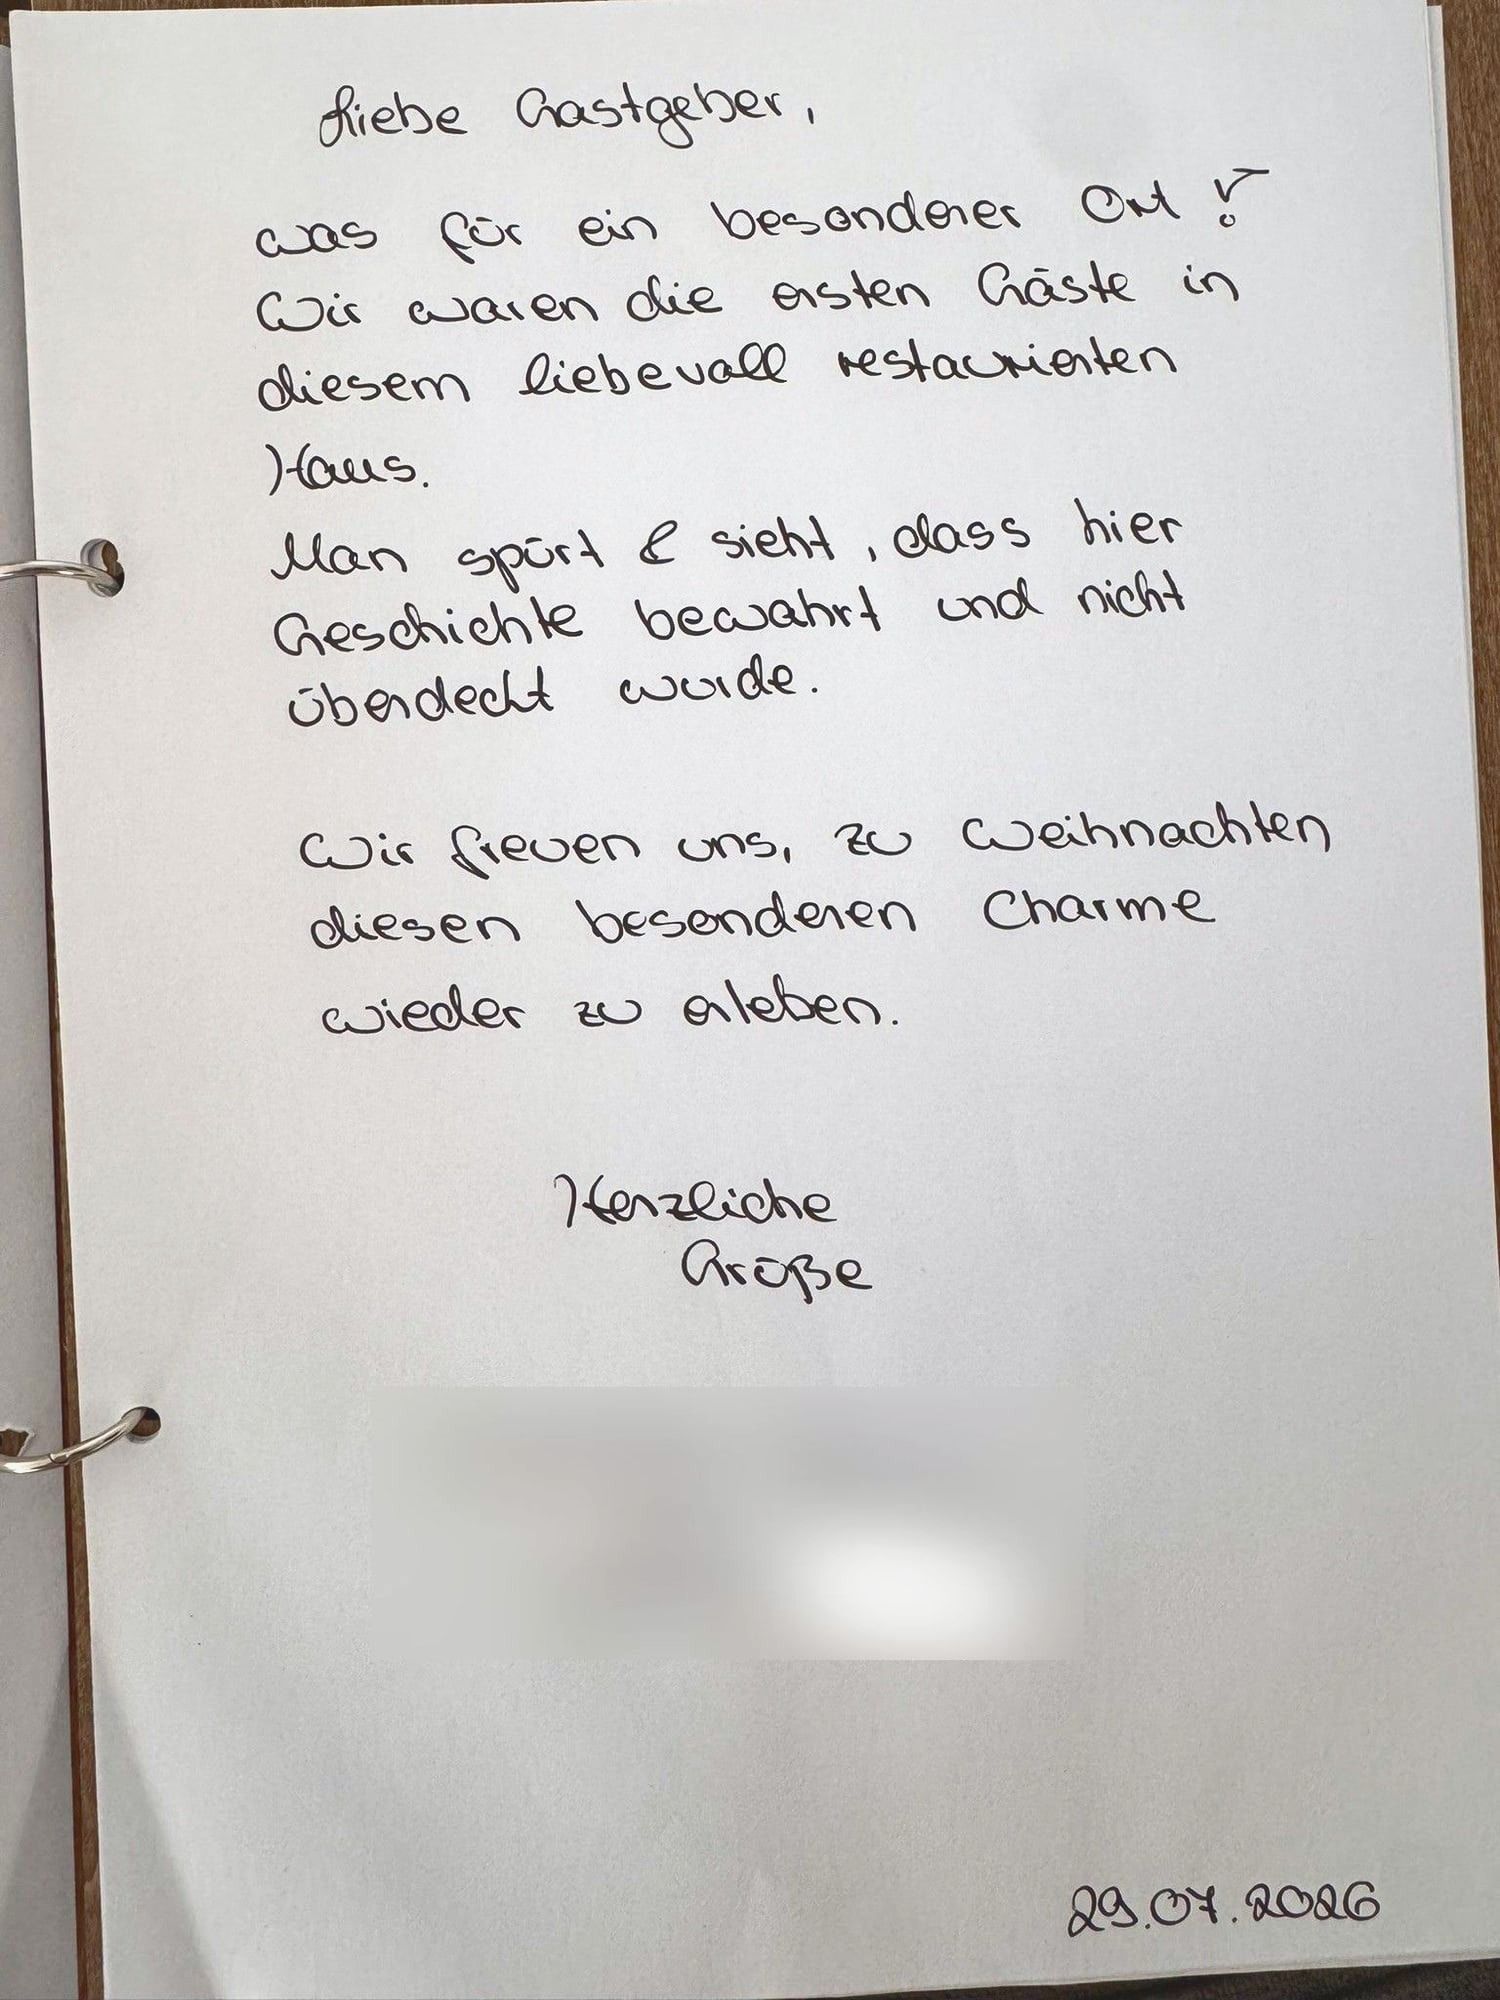 Liebe Gastgeber,
was für ein besonderer Ort!
Wir waren die ersten Gäste in
diesem liebevoll restaurierten
Haus.
Man spürt & sieht, dass hier
Geschichte bewahrt und nicht
überdeckt wurde.
Wir freuen uns, zu Weihnachten
diesen besonderen Charme
wieder zu erleben.
Herzliche
Grüße
29.07.2026